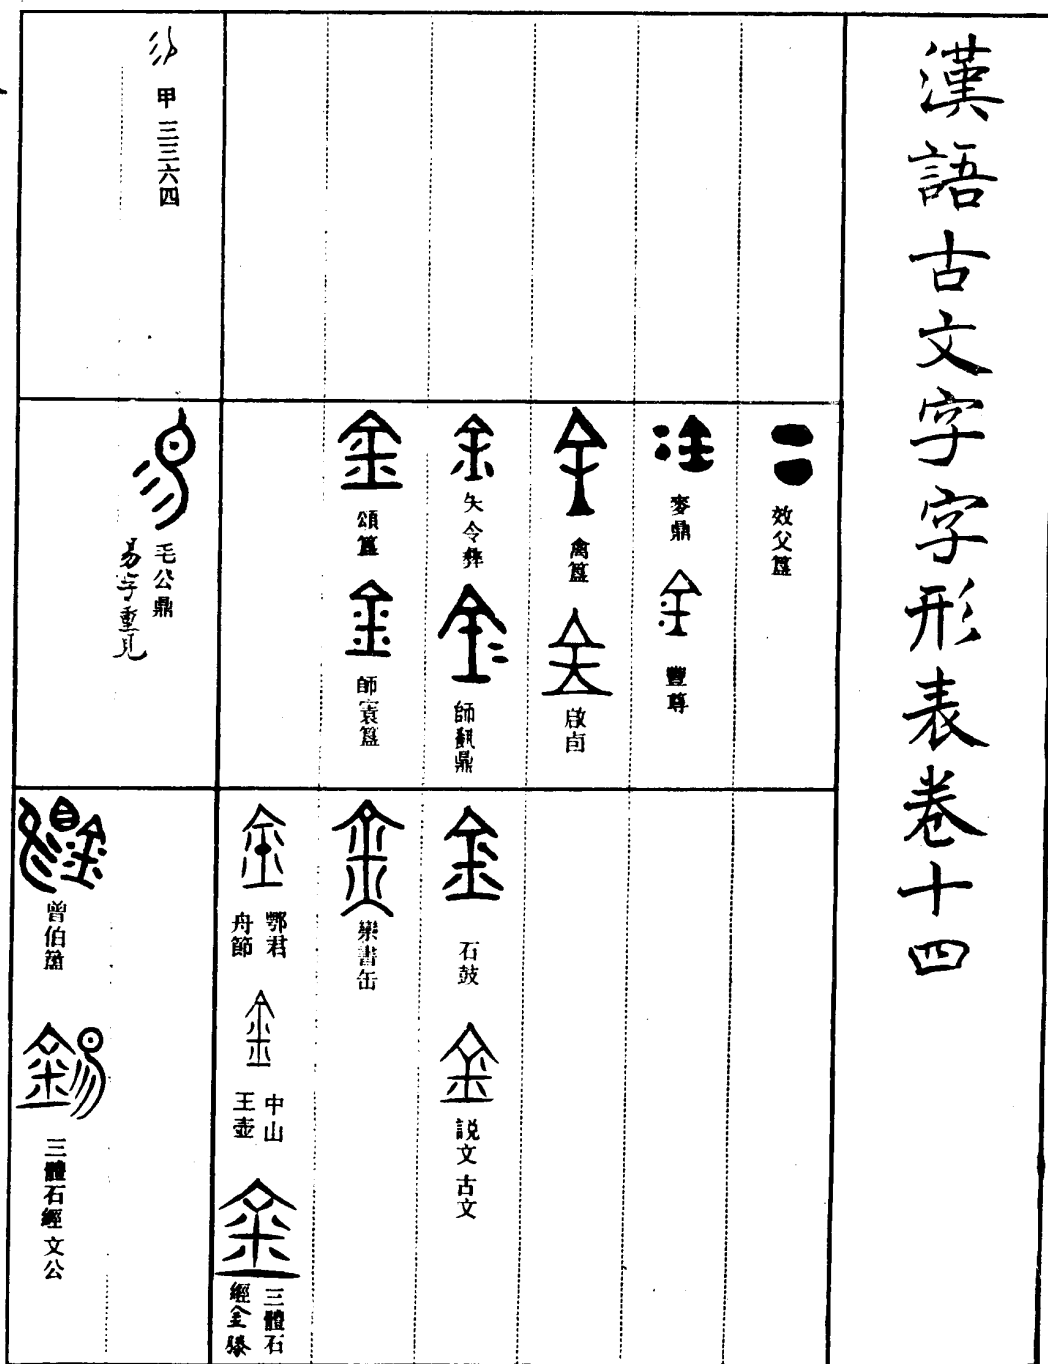 漢語古文字字形表卷十四
效父簋
麥鼎
豐尊
禽簋
啟卣
矢令彝
師𩛥鼎
頌簋
師㝨簋
石鼓
説文古文
欒書缶
鄂君
舟節
中山
王壺
三體石
經金縢
甲三三六四
毛公鼎
易字重見
曾伯簠
三體石經文公